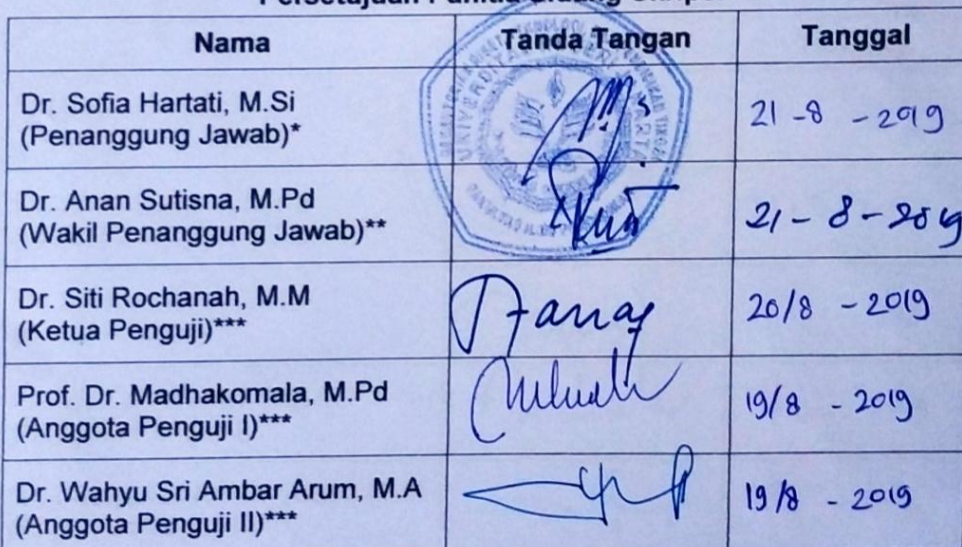 Nama Tanda Tangan Tanggal
Dr. Sofia Hartati, M.Si
(Penanggung Jawab)*
21-8-2019
Dr. Anan Sutisna, M.Pd
(Wakil Penanggung Jawab)**
21-8-2019
Dr. Siti Rochanah, M.M
(Ketua Penguji)***
20/8-2019
Prof. Dr. Madhakomala, M.Pd
(Anggota Penguji I)***
19/8-2019
Dr. Wahyu Sri Ambar Arum, M.A
(Anggota Penguji II)***
19/8-2019